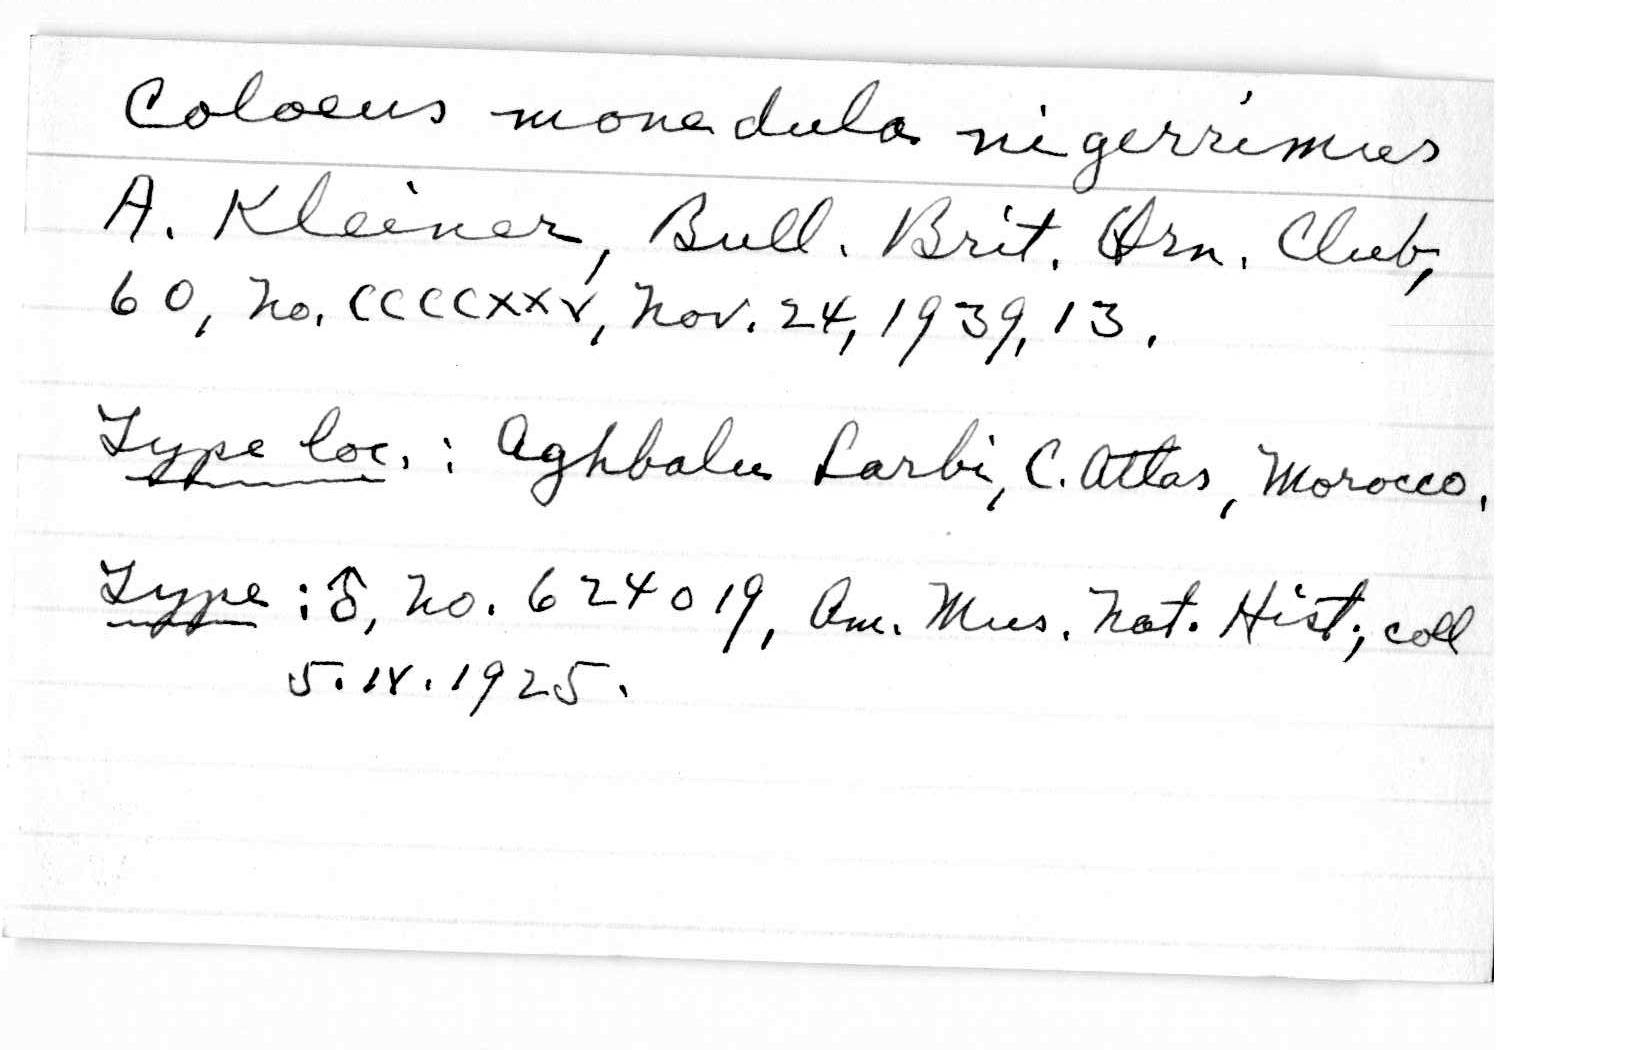 Coloeus monedula nigerrimus
A. Kleiner, Bull. Brit. Orn. Club,
60, No. CCCCXXV, Nov. 24, 1939, 13.
Type loc.: Aghbalu Larbi, C. Atlas, Morocco.
Type: ♂, No. 624019, Am. Mus. Nat. Hist.; coll
5.IX.1925.